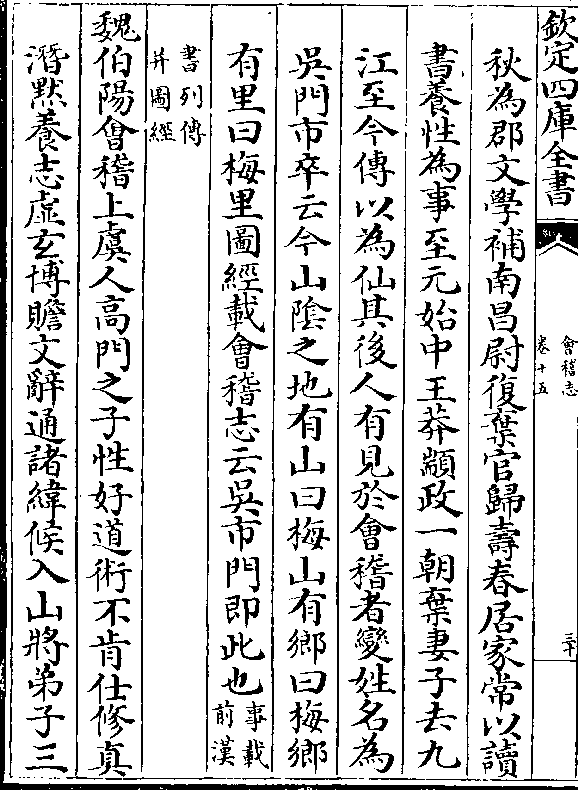 欽定四庫全書
會稽志
卷十五
三十
秋為郡文學補南昌尉復棄官歸壽春居家常以讀
書養性為事至元始中王莽顓政一朝棄妻子去九
江至今傳以為仙其後人有見於會稽者變姓名為
吳門市卒云今山陰之地有山曰梅山有鄉曰梅鄉
有里曰梅里圖經載會稽志云吳市門即此也事載
前漢
書列傳
并圖經
魏伯陽會稽上虞人高門之子性好道術不肯仕修真
潛默養志虛玄博贍文辭通諸緯候入山將弟子三